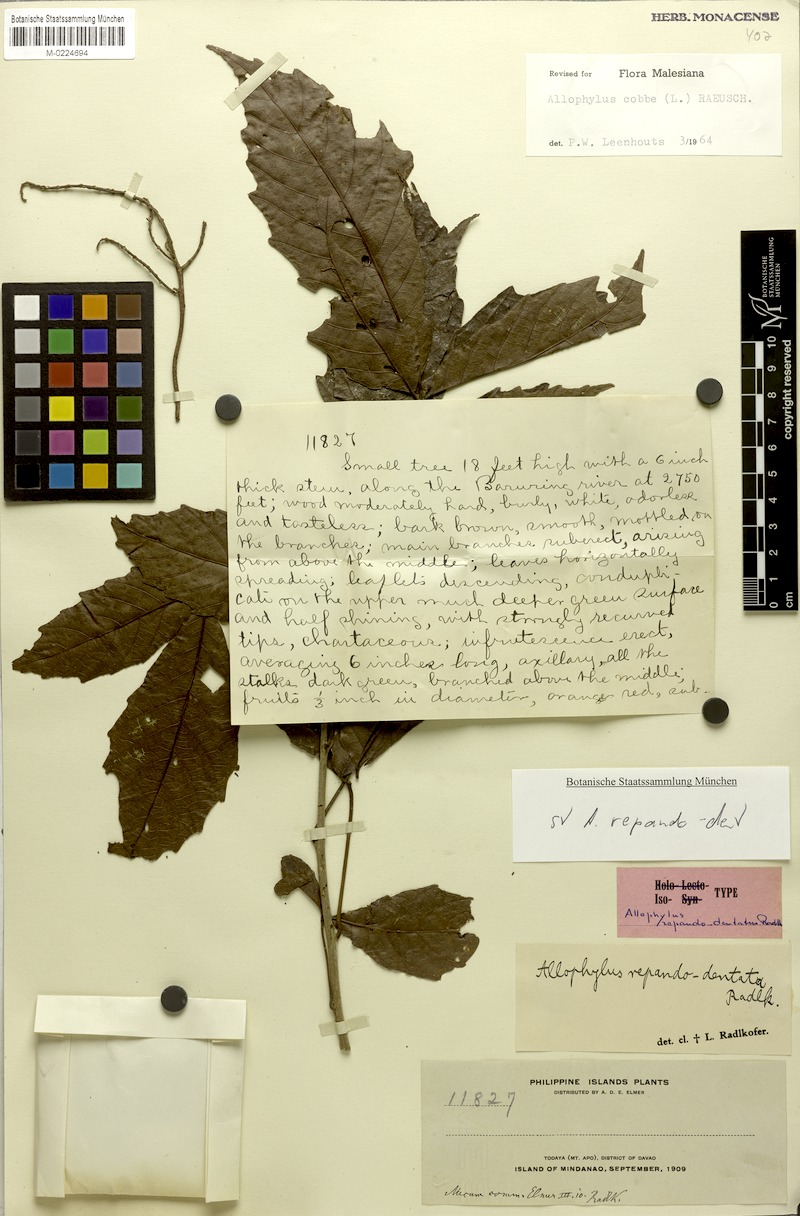 Botanische Staatssammlung München
M-0224694
HERB. MONACENSE
402
Revised for Flora Malesiana
Allophylus cobbe (L.) RAEUSCH.
det. P.W. Leenhouts 3/1964
11827
Small tree 18 feet high with a 6 inch
thick stem, along the Baruring river at 2750
feet; wood moderately hard, burly, white, odorless
and tasteless; bark brown, smooth, mottled on
the branches; main branches suberect, arising
from above the middle; leaves horizontally
spreading; leaflets descending, condupli-
cate on the upper much deeper green surface
and half shining, with strongly recurved
tips, chartaceous; infrutescence erect,
averaging 6 inches long, axillary, all the
stalks dark green, branched above the middle;
fruits ½ inch in diameter, orange red, sub-
BOTANISCHE
STAATSSAMMLUNG
MÜNCHEN
copyright reserved
10
9
8
7
6
5
4
3
2
1
0
cm
Botanische Staatssammlung München
A. repando-dent
Holo- Lecto-
Iso- Syn- TYPE
Allophylus
repando-dentatus Radlk
Allophylus repando-dentata
Radlk.
det. cl. † L. Radlkofer.
PHILIPPINE ISLANDS PLANTS
DISTRIBUTED BY A. D. E. ELMER
11827
TODAYA (MT. APO), DISTRICT OF DAVAO
ISLAND OF MINDANAO, SEPTEMBER, 1909
Mecum comm. Elmer III. 10. Radlk.